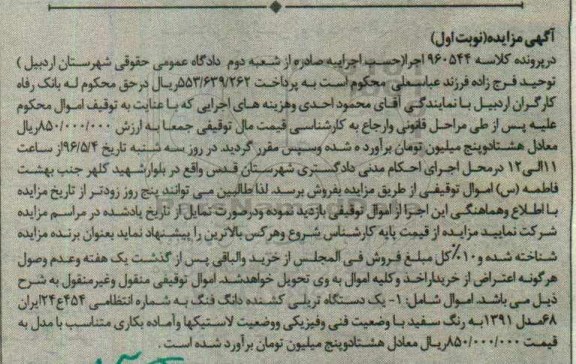 آگهی مزایده(نوبت اول)
درپرونده کلاسه ۹۶۰۵۴۴ اجرا(حسب اجراییه صادره از شعبه دوم دادگاه عمومی حقوقی شهرستان اردبیل )
توحید فرج زاده فرزند عباسعلی محکوم است به پرداخت ۵۵۳/۶۳۹/۲۶۲ریال درحق محکوم له بانک رفاه
کارگران اردبیل با نمایندگی آقای محمود احدی وهزینه های اجرایی که با عنایت به توقیف اموال محکوم
علیه پس از طی مراحل قانونی وارجاع به کارشناسی قیمت مال توقیفی جمعا به ارزش ۸۵۰/۰۰۰/۰۰۰ریال
معادل هشتادوپنج میلیون تومان برآورد ه شده وسپس مقرر گردید در روز سه شنبه تاریخ ۹۶/۵/۴از ساعت
۱۱الی۱۲ درمحل اجرای احکام مدنی دادگستری شهرستان قدس واقع در بلوارشهید کلهر جنب بهشت
فاطمه (س) اموال توقیفی از طریق مزایده بفروش برسد. لذاطالبین می توانند پنج روز زودتر از تاریخ مزایده
با اطلاع وهماهنگی این اجرا از اموال توقیفی بازدید نموده ودرصورت تمایل از تاریخ یادشده در مراسم مزایده
شرکت نمایند مزایده از قیمت پایه کارشناس شروع وهرکس بالاترین را پیشنهاد نماید بعنوان برنده مزایده
شناخته شده و۱۰٪کل مبلغ فروش فی المجلس از خرید والباقی پس از گذشت یک هفته وعدم وصول
هرگونه اعتراض از خریداراخذ وکلیه اموال به وی تحویل خواهدشد. اموال توقیفی منقول وغیرمنقول به شرح
ذیل می باشد. اموال شامل: ۱- یک دستگاه تریلی کشنده دانگ فنگ به شماره انتظامی ۴۵۴ع۲۴ایران
۶۸مدل ۱۳۹۱به رنگ سفید با وضعیت فنی وفیزیکی ووضعیت لاستیکها وآماده بکاری متناسب با مدل به
قیمت ۸۵۰/۰۰۰/۰۰۰ریال معادل هشتادوپنج میلیون تومان برآورد شده است .